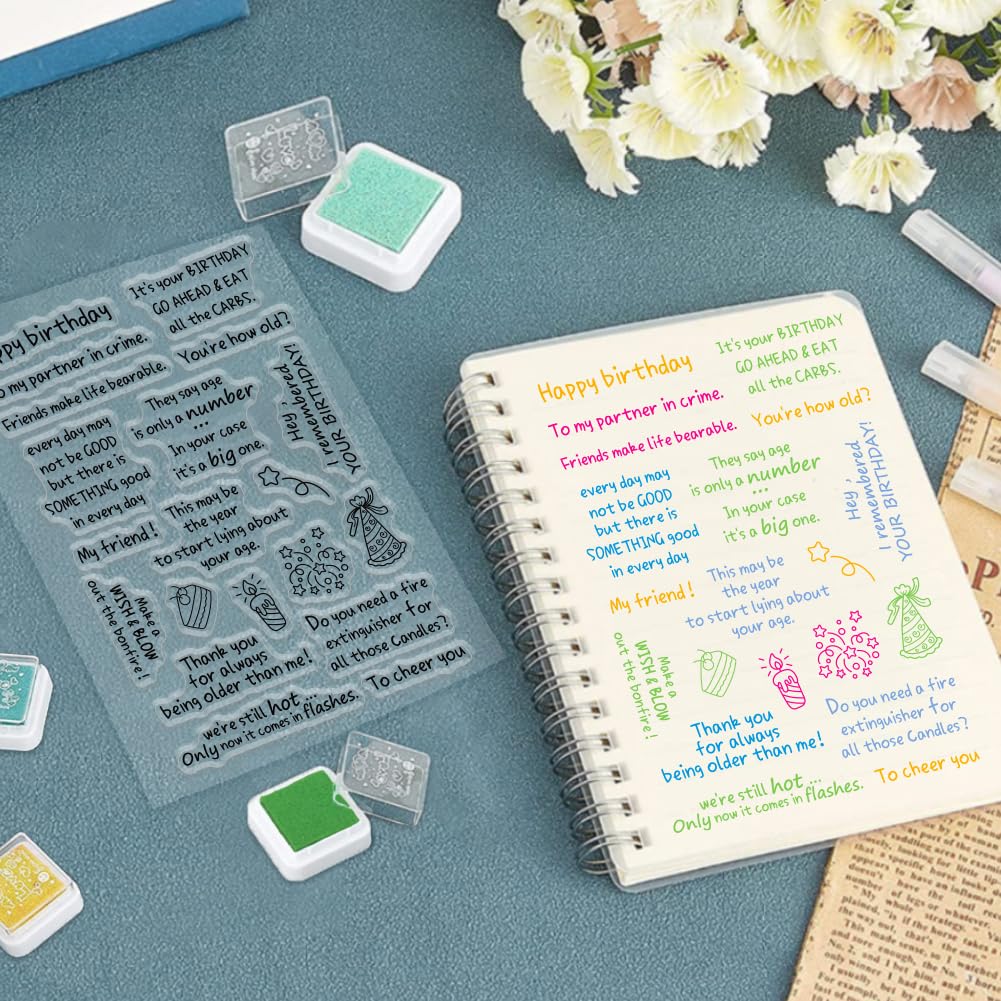 It's your BIRTHDAY
GO AHEAD & EAT
all the CARBS.
ppy birthday
my partner in crime.
You're how old?
Friends make life bearable.
They say age
is only a number
...
In your case
it's a big one.
Hey,
I remembered
YOUR BIRTHDAY!
every day may
not be GOOD
but there is
SOMETHING good
in every day
My friend!
This may be
the year
to start lying about
your age.
Make a
WISH & BLOW
out the bonfire!
Do you need a fire
extinguisher for
all those Candles?
Thank you
for always
being older than me!
To cheer you
we're still hot ...
Only now it comes in flashes.
It's your BIRTHDAY
GO AHEAD & EAT
all the CARBS.
Happy birthday
To my partner in crime.
You're how old?
Friends make life bearable.
They say age
is only a number
...
In your case
it's a big one.
Hey,
I remembered
YOUR BIRTHDAY!
every day may
not be GOOD
but there is
SOMETHING good
in every day
My friend!
This may be
the year
to start lying about
your age.
Make a
WISH & BLOW
out the bonfire!!
Do you need a fire
extinguisher for
all those Candles?
Thank you
for always
being older than me!
To cheer you
we're still hot ...
Only now it comes in flashes.